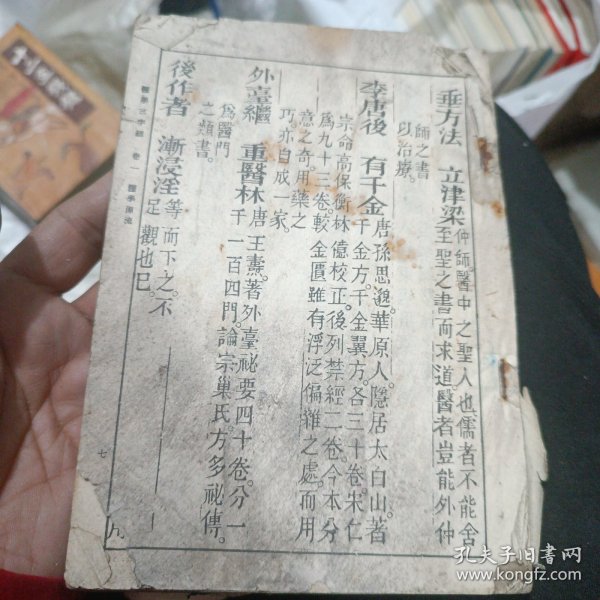 垂方法 立津梁 仲師醫中之聖人也儒者不能舍
至聖之書而求道醫者豈能外仲
師之書
以治療。
李唐後 有千金 唐孫思邈。華原人。隱居太白山。著
千金方。千金翼方。各三十卷。宋仁
宗命高保衡林億校正。後列禁經二卷。今本分
爲九十三卷。較金匱雖有浮泛偏雜之處。而用
意之奇。用藥之
巧。亦自成一家。
外臺繼 重醫林 唐王燾。著外臺祕要四十卷。分一
千一百四門。論宗巢氏。方多祕傳。
爲醫門
之類書。
後作者 漸浸淫 等而下之。不
足觀也已。
醫學三字經 卷一 醫學源流 七
九
孔夫子旧书网
www.kongfz.com